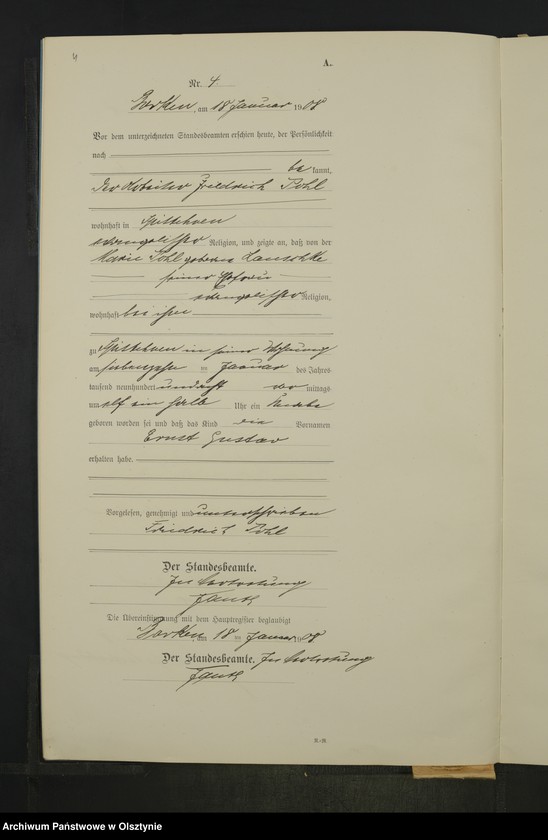 4
A.
Nr. 4.
Borken, am 18 Januar 1908
Vor dem unterzeichneten Standesbeamten erschien heute, der Persönlichkeit
nach
be kannt,
der Arbeiter Friedrich Pohl
wohnhaft in
evangelischer Religion, und zeigte an, daß von der
Marie Pohl geborene
seiner Ehefrau
evangelischer Religion,
wohnhaft bei ihm
zu in seiner Wohnung
am siebenzehn ten Januar des Jahres
tausend neunhundert und acht vor mittags
um elf ein halb Uhr ein Knabe
geboren worden sei und daß das Kind die Vornamen
Ernst Gustav
erhalten habe.
Vorgelesen, genehmigt und unterschrieben
Friedrich Pohl
Der Standesbeamte.
In Vertretung
Die Übereinstimmung mit dem Hauptregister beglaubigt
Borken, am 18 ten Januar 1908
Der Standesbeamte. In Vertretung
Archiwum Państwowe w Olsztynie